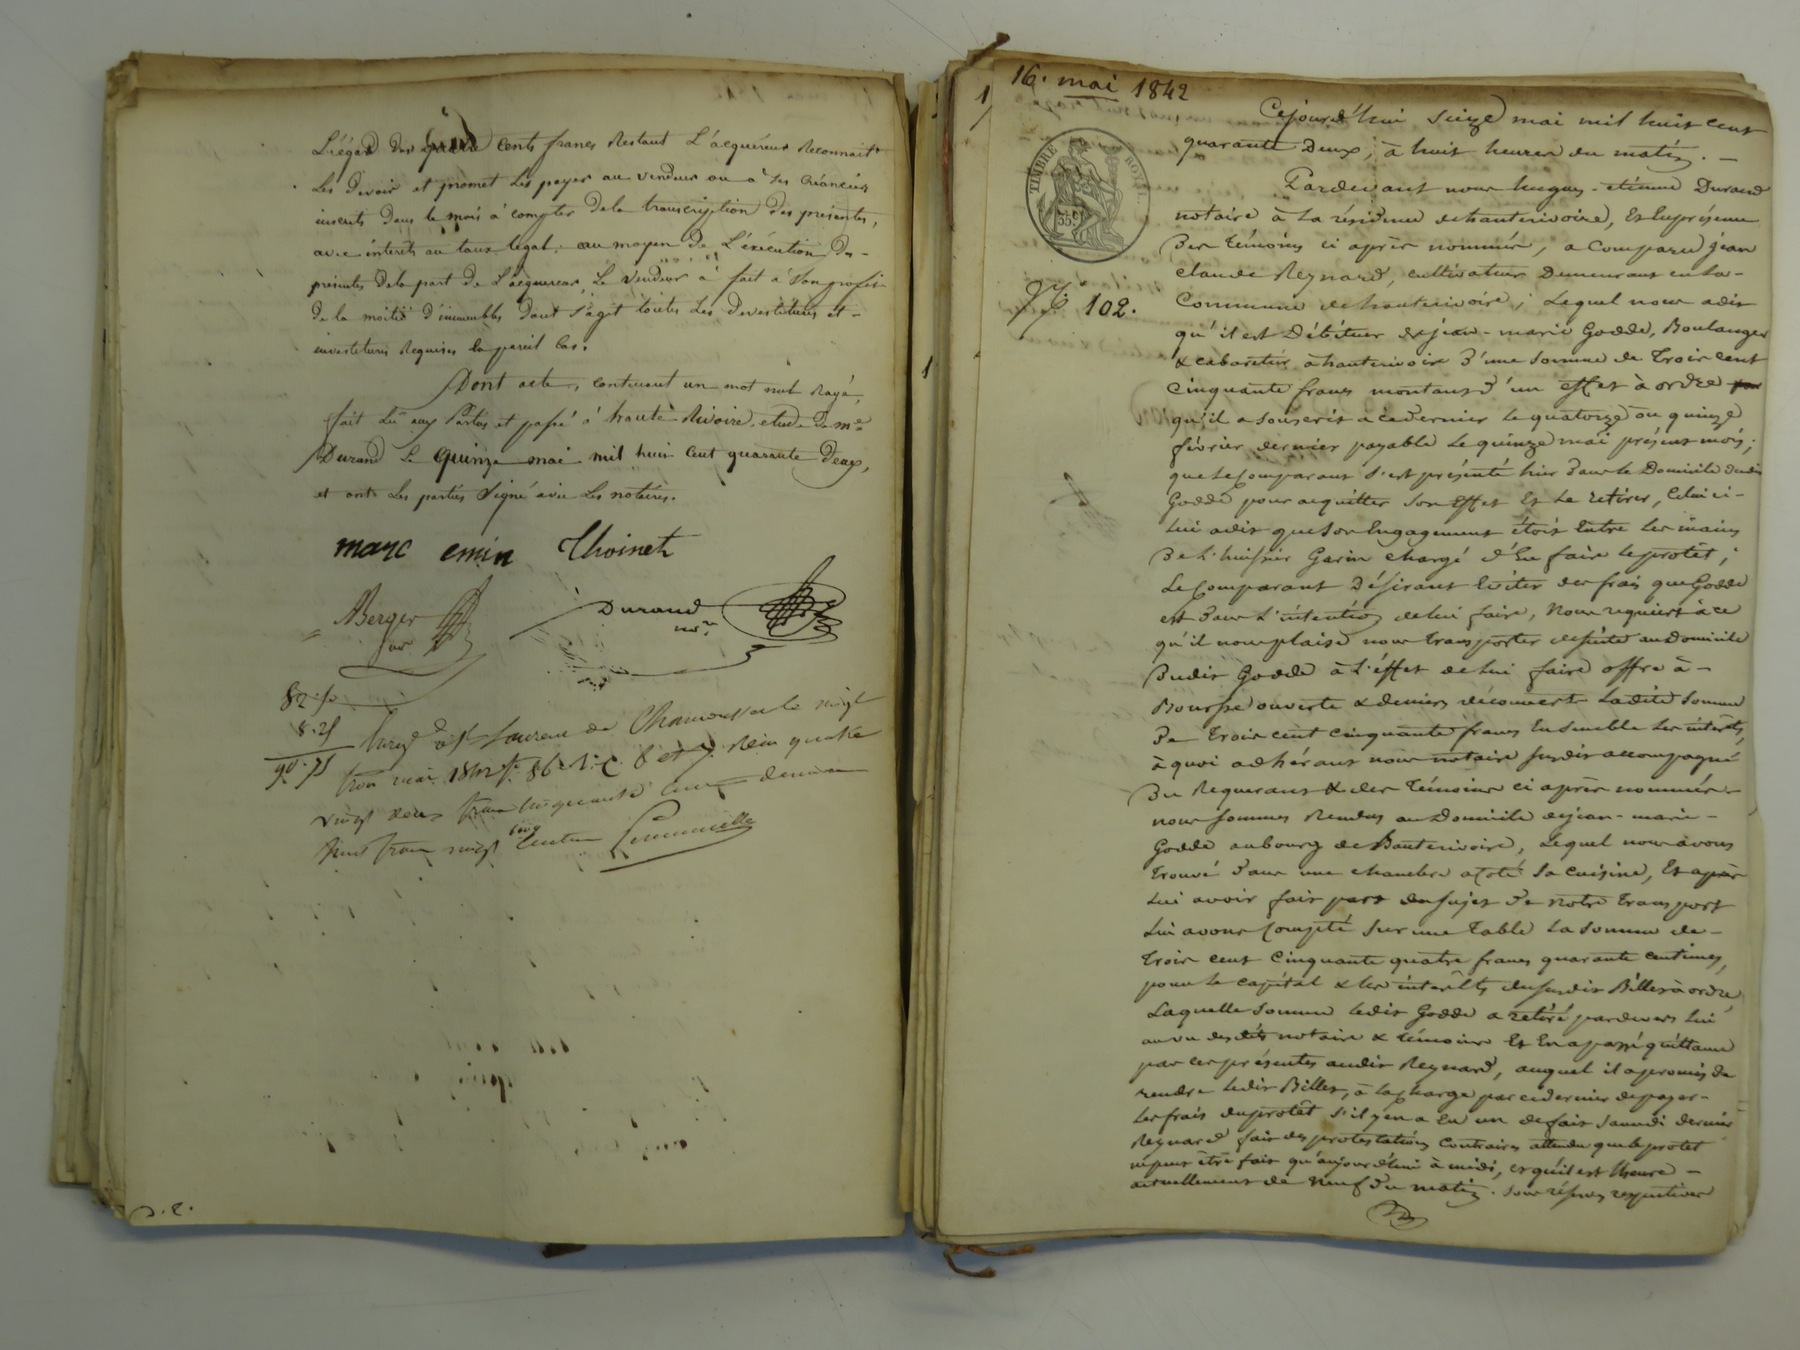 L'égard des quatre cents francs Restant L'acquéreur Reconnait
les devoir et promet les payer au vendeur ou à ses créanciers
inscrits dans le mois à compter de la transcription des présentes,
avec intérêts au taux légal. au moyen de L'exécution des
présentes de la part de L'acquereur, Le Vendeur a fait à son profit
de la moitié d'immeubles dont s'agit toutes Les Devestitures et
investitures Requises en pareil Cas.
Dont acte, contenant un mot nul Rayé,
fait lu aux Parties et passé à haute Rivoire, etude de me
Durand Le quinze mai mil huit Cent quarante deux,
et ont Les parties Signé avec Les notaires.
marc emin Thoinet
Berger
Durand
nore
8.25
90.75
Enregé à St Laurent de Chamousset le vingt
trois mai 1842 fo 86 Vo C. 8 et 9. Reçu quatre
vingt deux francs cinquante cent decime
huit francs vingt cinq Centimes
16. mai 1842
1
Cejourd'hui Seize mai mil huit cent
quarante Deux, à huit heures du matin. —
Pardevant nous hugues-étienne Durand
notaire à la résidence de hauterivoire, Et En présence
Des témoins ci après nommés, a Comparu jean
claude Reynard, cultivateur Demeurant en La
Commune de hauterivoire; Lequel nous a dit
qu'il est Débiteur de jean-marie Godde, Boulanger
& cabaretier à hauterivoire d'une somme de Trois cent
cinquante francs montant d'un effet à ordre
qu'il a Souscrit a ce dernier le quatorze ou quinze
février dernier payable Le quinze mai présent mois;
que Le Comparant s'est présenté hier dans le Domicile dudit
Godde pour acquitter Son Effet Et Le retirer, Celui ci
Lui a dit que Son Engagement étoit Entre Les mains
De L'huissier Garin chargé d'En faire le protêt;
Le Comparant Désirant Eviter des frais que Godde
est dans L'intention de lui faire, Nous requiert à ce
qu'il nous plaise nous transporter de suite au Domicile
Dudit Godde à L'effet de Lui faire offre à
Bourse ouverte & deniers découverts La dite Somme
De Trois cent cinquante francs Ensemble Les intérêts,
à quoi adhérant nous notaire susdit accompagné
Du Requerant & des témoins ci après nommés
nous Sommes Rendus au Domicile de jean-marie
Godde au bourg de hauterivoire, Lequel nous avons
Trouvé dans une chambre a coté Sa cuisine, Et après
Lui avoir fait part du sujet De notre transport
Lui avons Compté Sur une table La Somme de
Trois cent Cinquante quatre francs quarante centimes,
pour Le capital & les intérêts du susdit Billet à ordre
Laquelle Somme ledit Godde a retiré pardevers lui
au vu des dits notaire & témoins Et En a passé quittance
par ces présentes audit Reynard, auquel il a promis de
rendre ledit Billet, à la charge par ce dernier de payer
les frais du protêt s'il y en a Eu un de fait Samedi dernier
Reynard fait des protestations Contraires attendu que le protêt
ne peut être fait qu'aujourd'hui à midi, et qu'il est l'heure
actuellement de neuf du matin. Sous réserves respectives
No 102.
TIMBRE ROYAL
35c